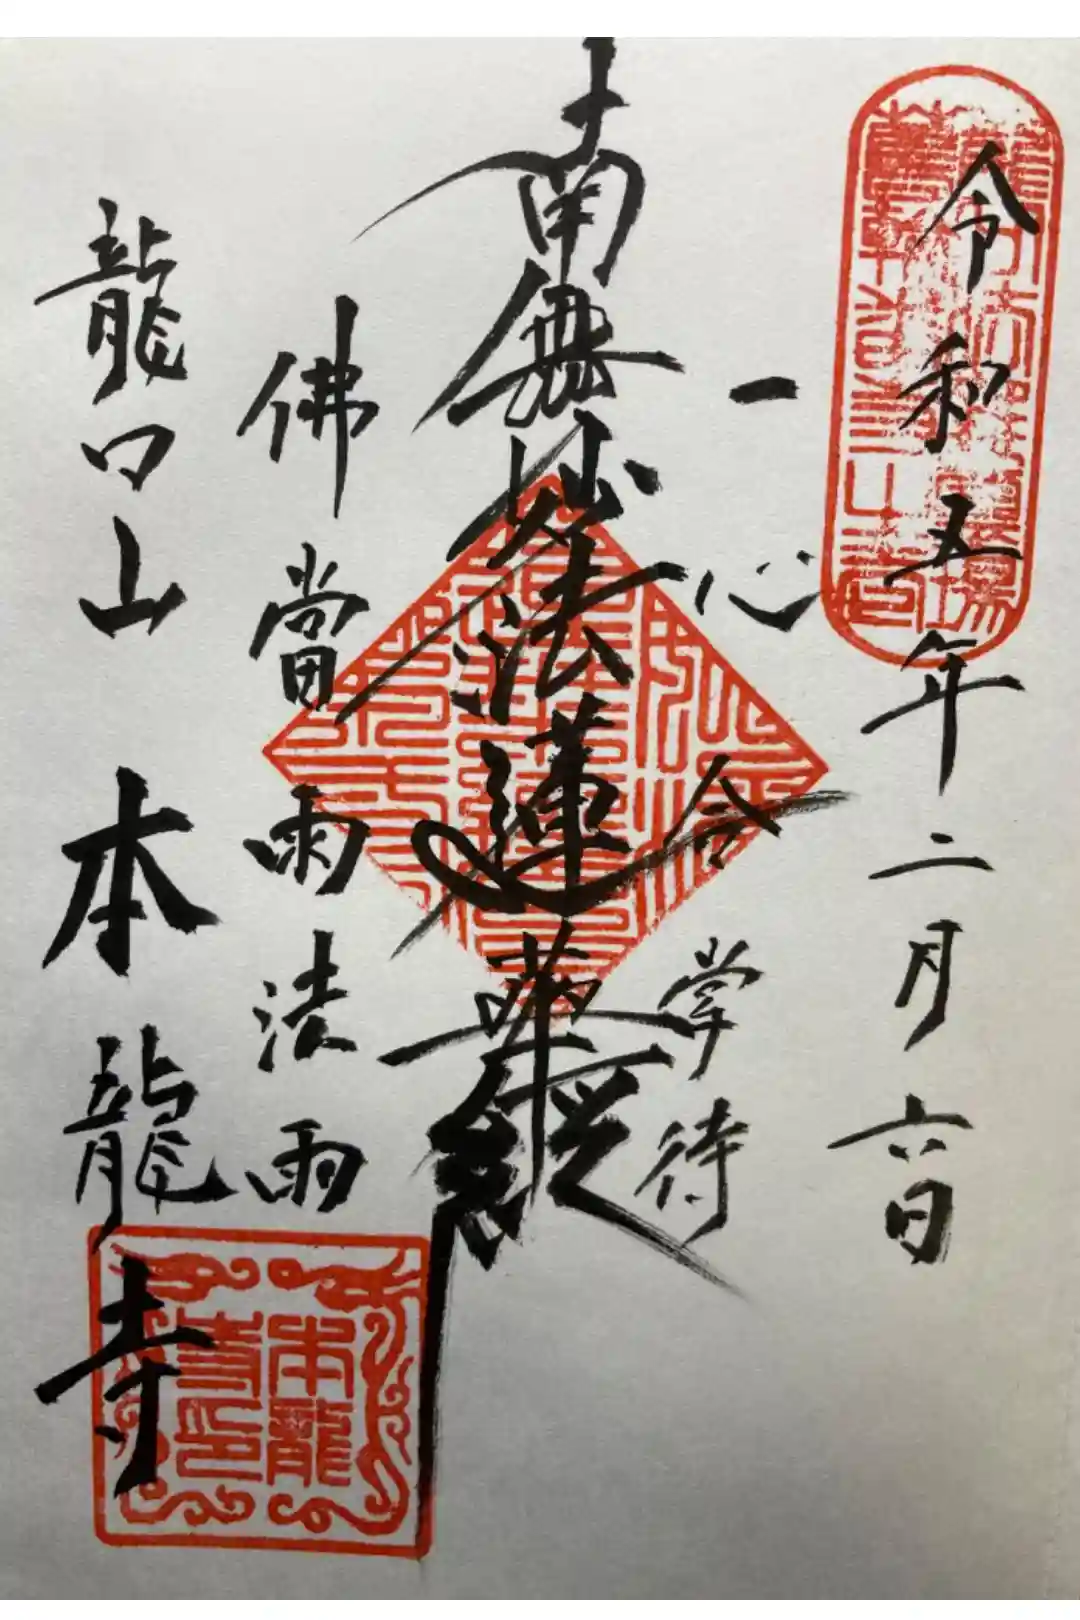 令和五年二月六日
一心合掌待
南無妙法蓮華経
佛當雨法雨
龍口山 本龍寺
本龍
寺印